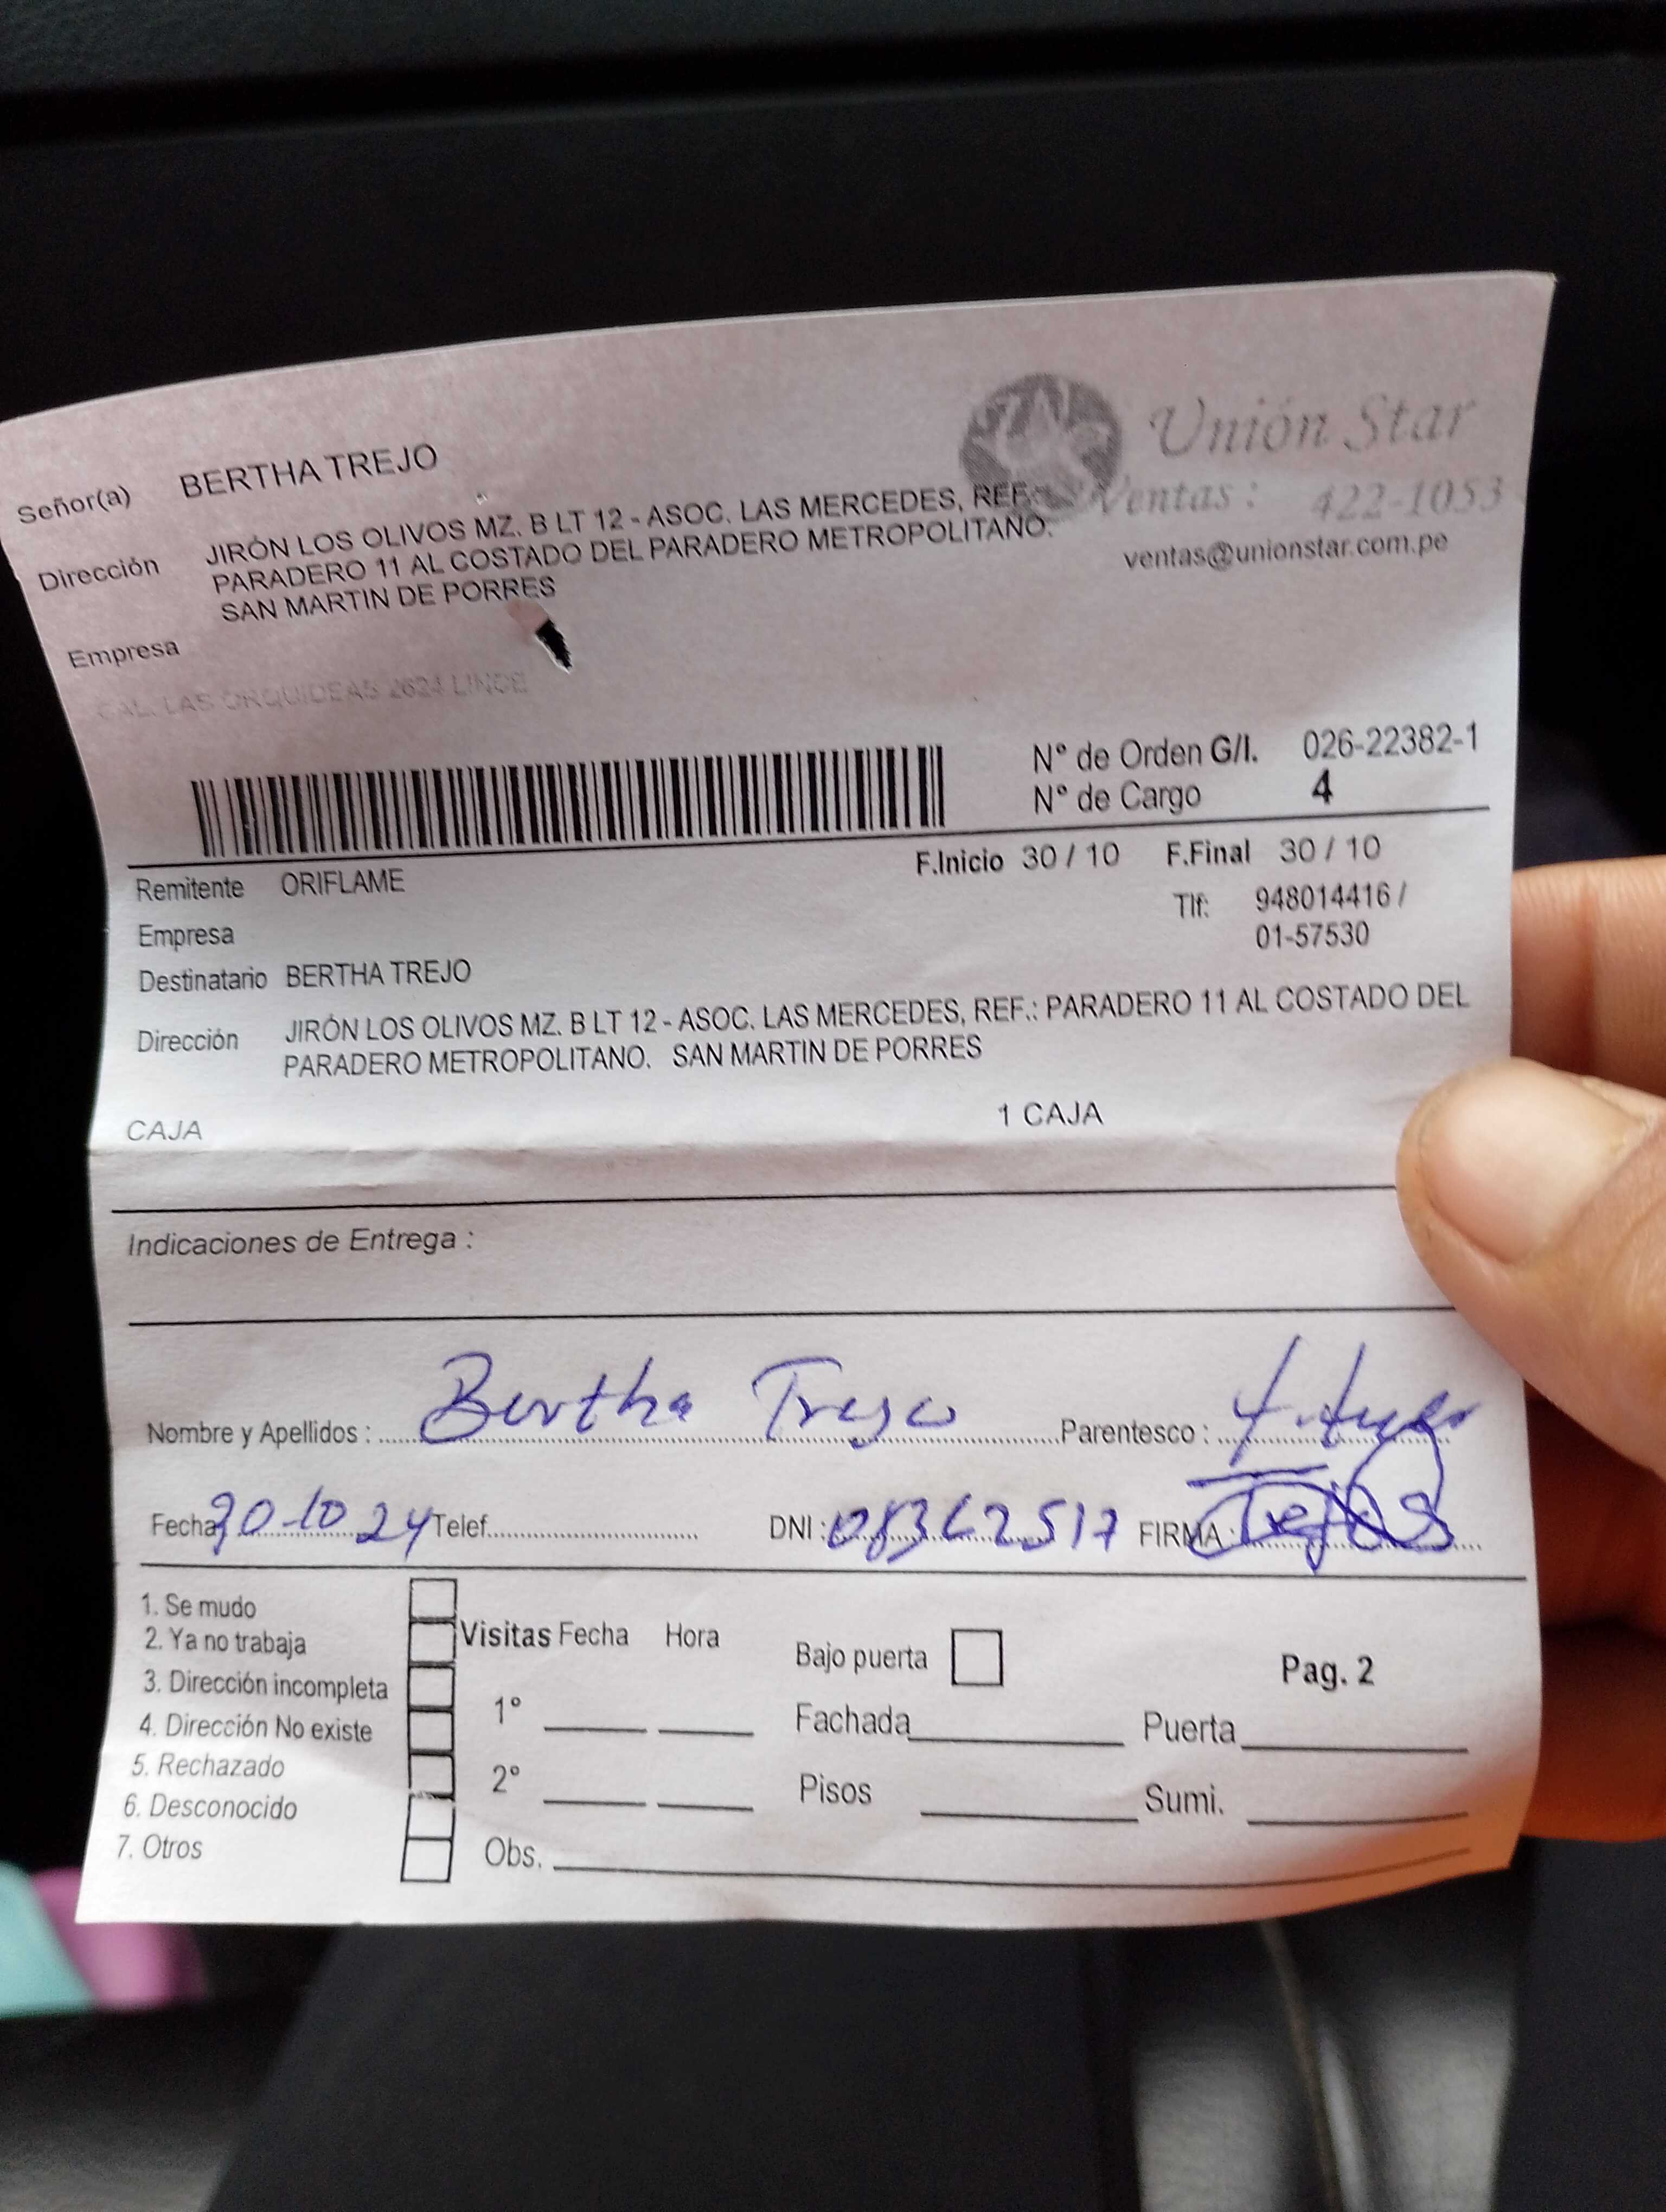 Unión Star
Señor(a) BERTHA TREJO
Ventas: 422-1053
Dirección JIRÓN LOS OLIVOS MZ. B LT 12 - ASOC. LAS MERCEDES, REF.:
PARADERO 11 AL COSTADO DEL PARADERO METROPOLITANO.
SAN MARTIN DE PORRES
ventas@unionstar.com.pe
Empresa
CAL. LAS ORQUIDEAS 2624 LINCE
N° de Orden G/I. 026-22382-1
N° de Cargo 4
F.Inicio 30 / 10 F.Final 30 / 10
Remitente ORIFLAME
Tlf: 948014416 /
01-57530
Empresa
Destinatario BERTHA TREJO
Dirección JIRÓN LOS OLIVOS MZ. B LT 12 - ASOC. LAS MERCEDES, REF.: PARADERO 11 AL COSTADO DEL
PARADERO METROPOLITANO. SAN MARTIN DE PORRES
CAJA 1 CAJA
Indicaciones de Entrega :
Nombre y Apellidos : Bertha Trejo Parentesco :
Fecha 30-10 24 Telef. DNI : 08362517 FIRMA : Trejo
1. Se mudo
2. Ya no trabaja
3. Dirección incompleta
4. Dirección No existe
5. Rechazado
6. Desconocido
7. Otros
Visitas Fecha Hora
1°
2°
Obs.
Bajo puerta
Fachada Puerta
Pisos Sumi.
Pag. 2